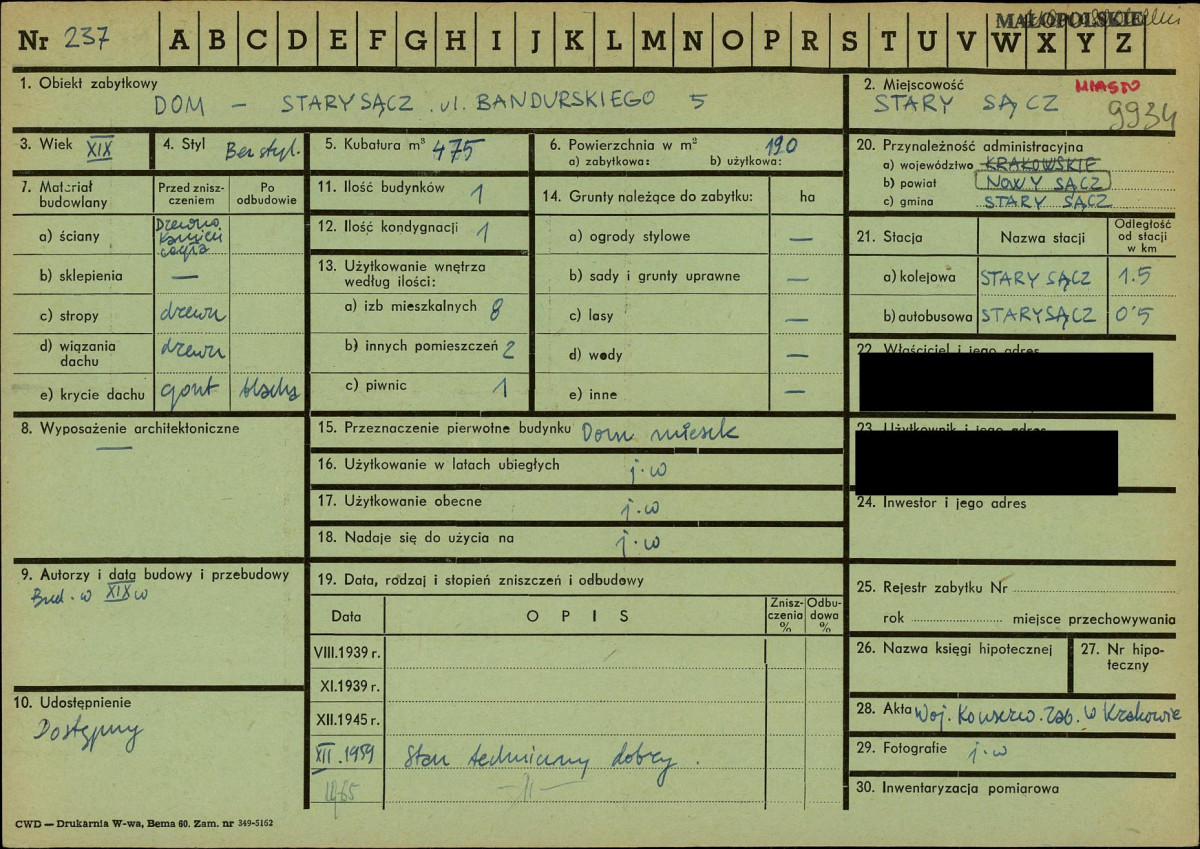 MAŁOPOLSKIE
Nr 237 A B C D E F G H I J K L M N O P R S T U V W X Y Z
1. Obiekt zabytkowy
DOM – STARY SĄCZ ul. BANDURSKIEGO 5
2. Miejscowość MIASTO
STARY SĄCZ 9934
3. Wiek XIX
4. Styl Bezstyl.
5. Kubatura m³ 475
6. Powierzchnia w m² 190
a) zabytkowa: b) użytkowa:
7. Materiał budowlany
Przed zniszczeniem
Po odbudowie
a) ściany Drzewno kamień cegła
b) sklepienia —
c) stropy drzewn
d) wiązania dachu drzewn
e) krycie dachu gont blachą
8. Wyposażenie architektoniczne
—
9. Autorzy i data budowy i przebudowy
Bud. w XIX w
10. Udostępnienie
Dostępny
11. Ilość budynków 1
12. Ilość kondygnacji 1
13. Użytkowanie wnętrza według ilości:
a) izb mieszkalnych 8
b) innych pomieszczeń 2
c) piwnic 1
14. Grunty należące do zabytku: ha
a) ogrody stylowe —
b) sady i grunty uprawne —
c) lasy —
d) wody —
e) inne —
15. Przeznaczenie pierwotne budynku Dom mieszk
16. Użytkowanie w latach ubiegłych j.w
17. Użytkowanie obecne j.w
18. Nadaje się do użycia na j.w
19. Data, rodzaj i stopień zniszczeń i odbudowy
Data OPIS Zniszczenia % Odbudowa %
VIII.1939 r.
XI.1939 r.
XII.1945 r.
XII.1959 Stan techniczny dobry.
1965 —//—
20. Przynależność administracyjna
a) województwo KRAKOWSKIE
b) powiat NOWY SĄCZ
c) gmina STARY SĄCZ
21. Stacja Nazwa stacji Odległość od stacji w km
a) kolejowa STARY SĄCZ 1.5
b) autobusowa STARY SĄCZ 0'5
22. Właściciel i jego adres
23. Użytkownik i jego adres
24. Inwestor i jego adres
25. Rejestr zabytku Nr
rok miejsce przechowywania
26. Nazwa księgi hipotecznej
27. Nr hipoteczny
28. Akta Woj. Konserw. Zab. w Krakowie
29. Fotografie j.w
30. Inwentaryzacja pomiarowa
CWD — Drukarnia W-wa, Bema 60. Zam. nr 349-5162